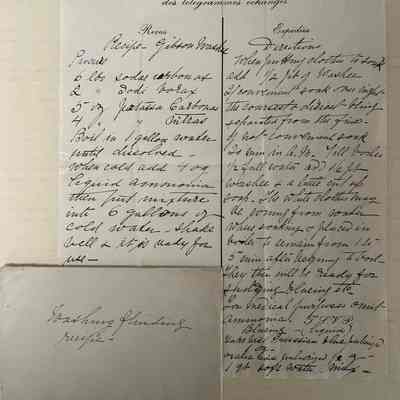 des télégrammes échangés
Recus
Recipe Gibson Washer
Procure
6 lbs sodae carbonax
2 " Sodi borax
5 oz Potassa Carbonas
4 " " Nitras
Boil in 1 gallon water
until dissolved -
when cold add 4 oz
liquid ammonia
then put mixture
into 6 gallons of
cold water - shake
well & it is ready for
use -
Expédiés
Directions
When putting clothes to soak
add 1/2 pt of washer
If convenient soak over night
the coarsest & dirtiest being
separated from the fine.
If not convenient soak
20 min in w. Fill boiler
1/2 full water add 1/2 pt
washer & a little cut up
soap. The white clothes may
be wrung from water
when soaking & placed in
boiler to remain from 1 to
5 min after begining to boil
They then will be ready for
blueing etc
For medical purposes omit
Ammonia.
Blueing - (liquid)
Prussian blue
1 qt soft water mix -
Washing fluid
recipe -